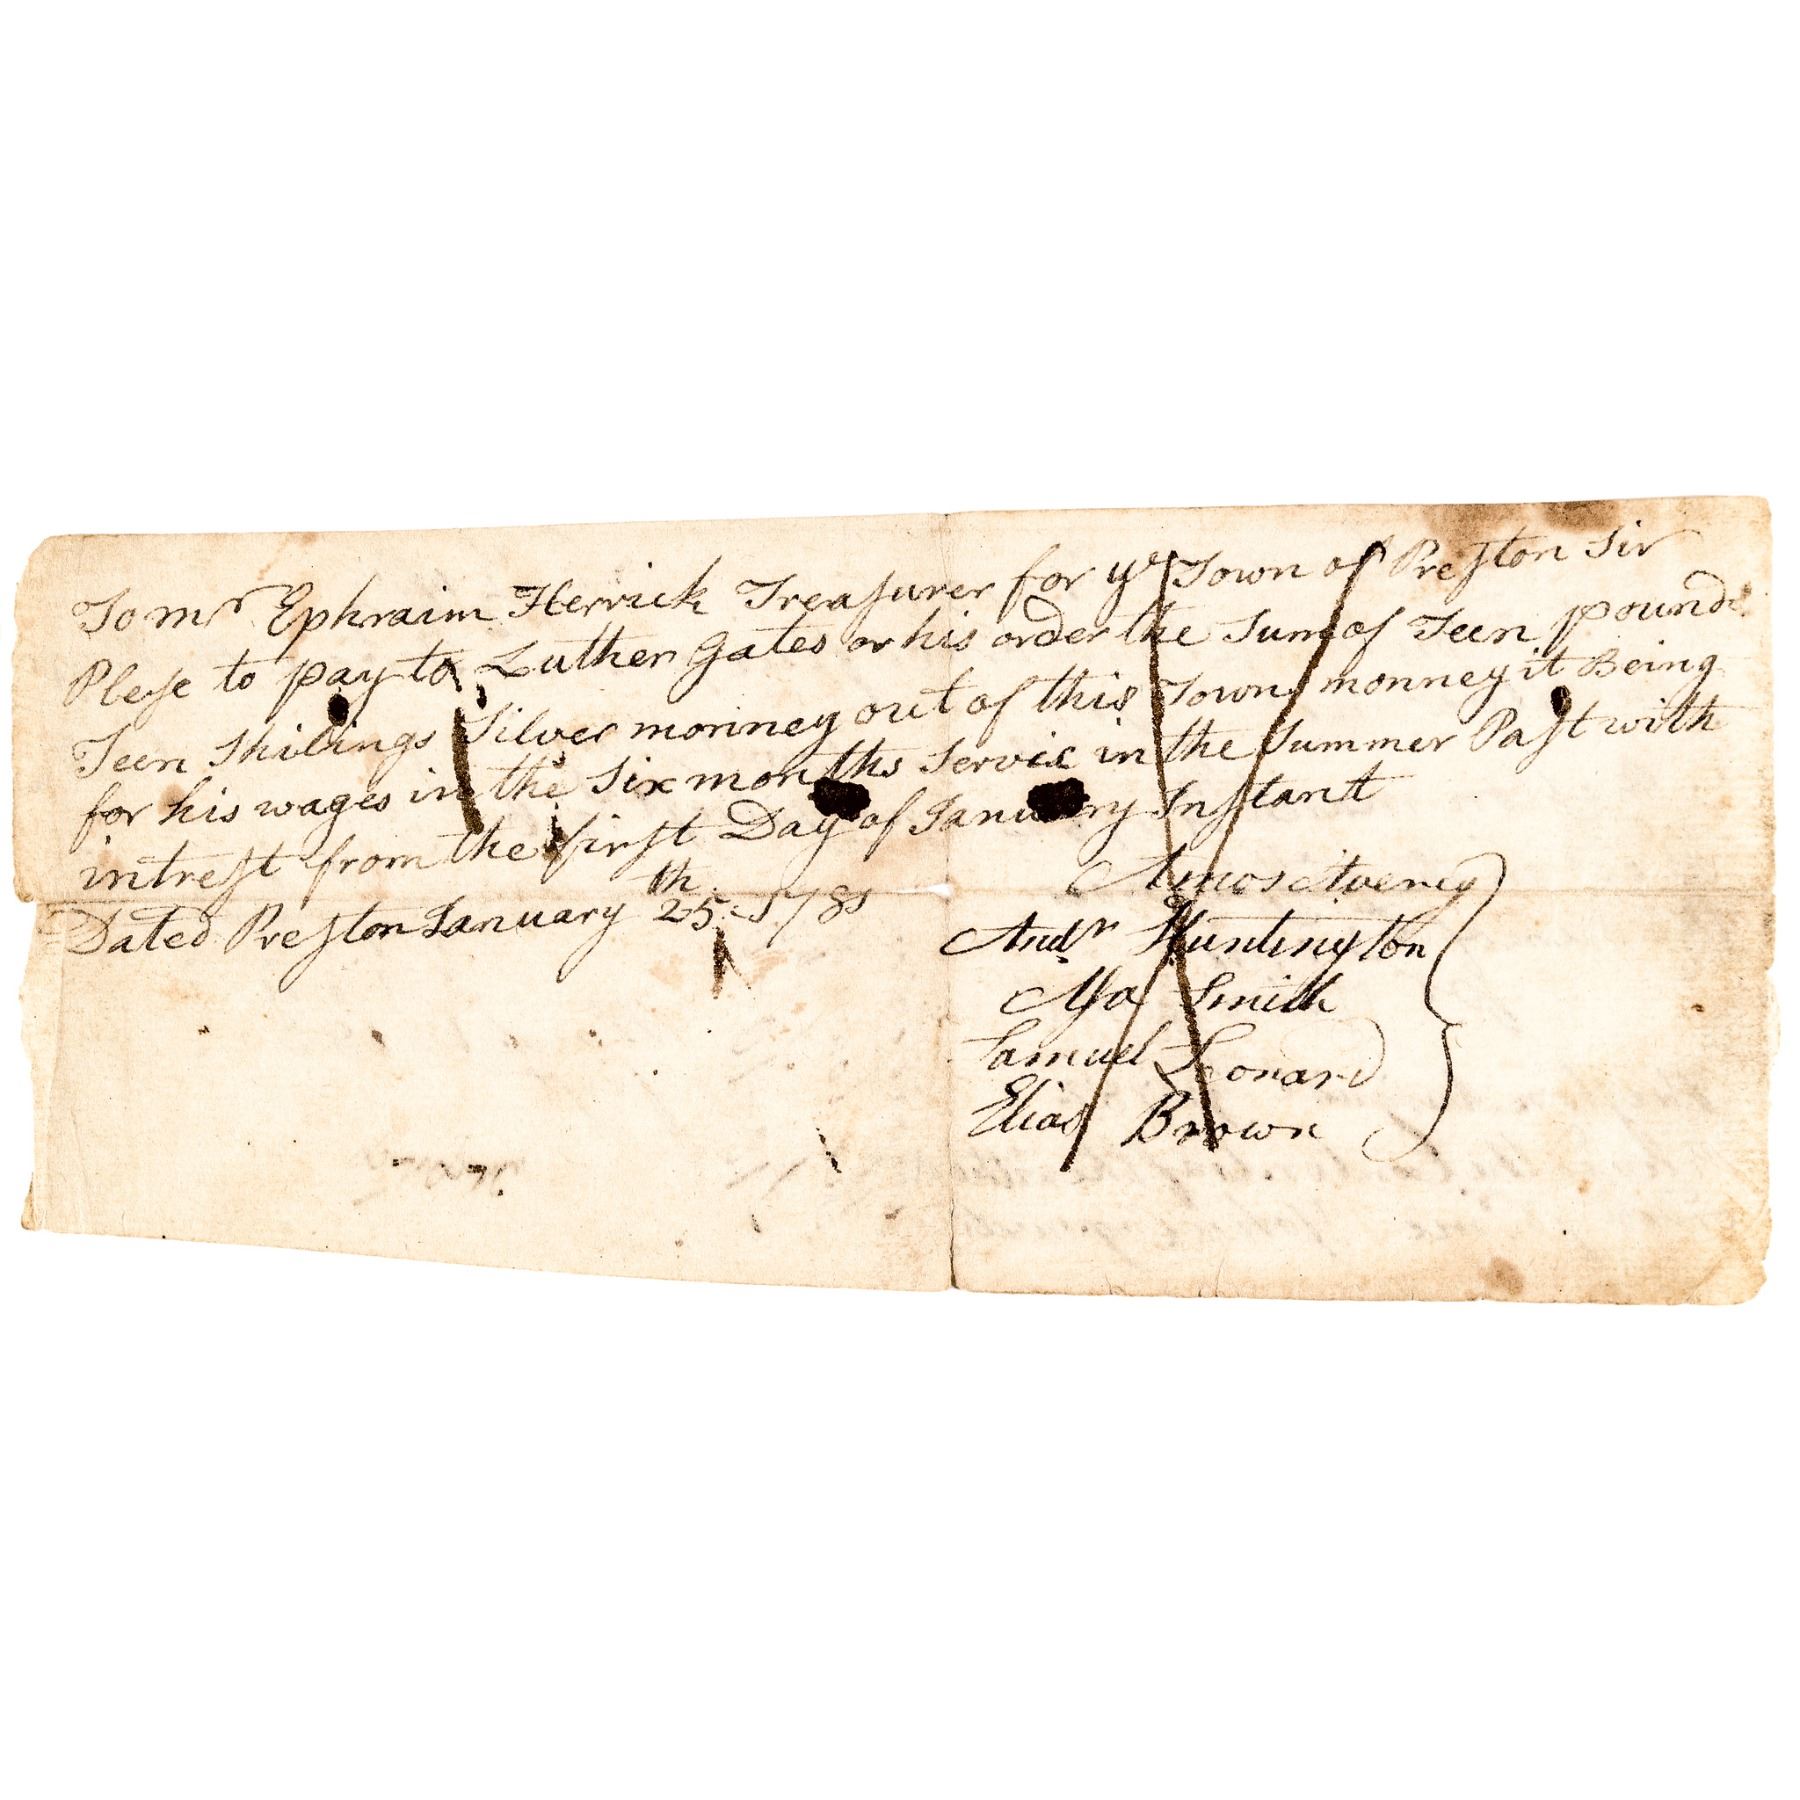 To mr Ephraim Herrick Treaſurer for ye Town of Preſton Sir
Pleſe to pay to Luther Gates or his order the Sum of Teen pounds
Teen Shilings Silver monney out of this Town monney it Being
for his wages in the Six months Servic in the Summer Paſt with
intreſt from the firſt Day of January Inſtant
Dated Preſton January 25th 1781
Amos Avery
Andr Huntington
Aſa Smith
Samuel Leonard
Elias Brown